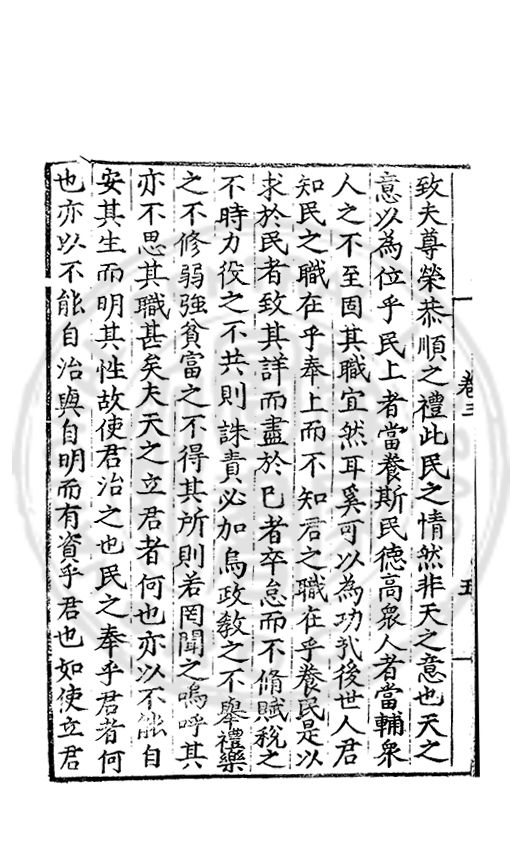 卷三
五
致夫尊榮恭順之禮此民之情然非天之意也天之
意以為位乎民上者當養斯民德高衆人者當輔衆
人之不至固其職宜然耳奚可以為功哉後世人君
知民之職在乎奉上而不知君之職在乎養民是以
求於民者致其詳而盡於已者卒怠而不脩賦稅之
不時力役之不共則誅責必加焉政教之不舉禮樂
之不修弱強貧富之不得其所則若罔聞之嗚呼其
亦不思其職甚矣夫天之立君者何也亦以不能自
安其生而明其性故使君治之也民之奉乎君者何
也亦以不能自治與自明而有資乎君也如使立君